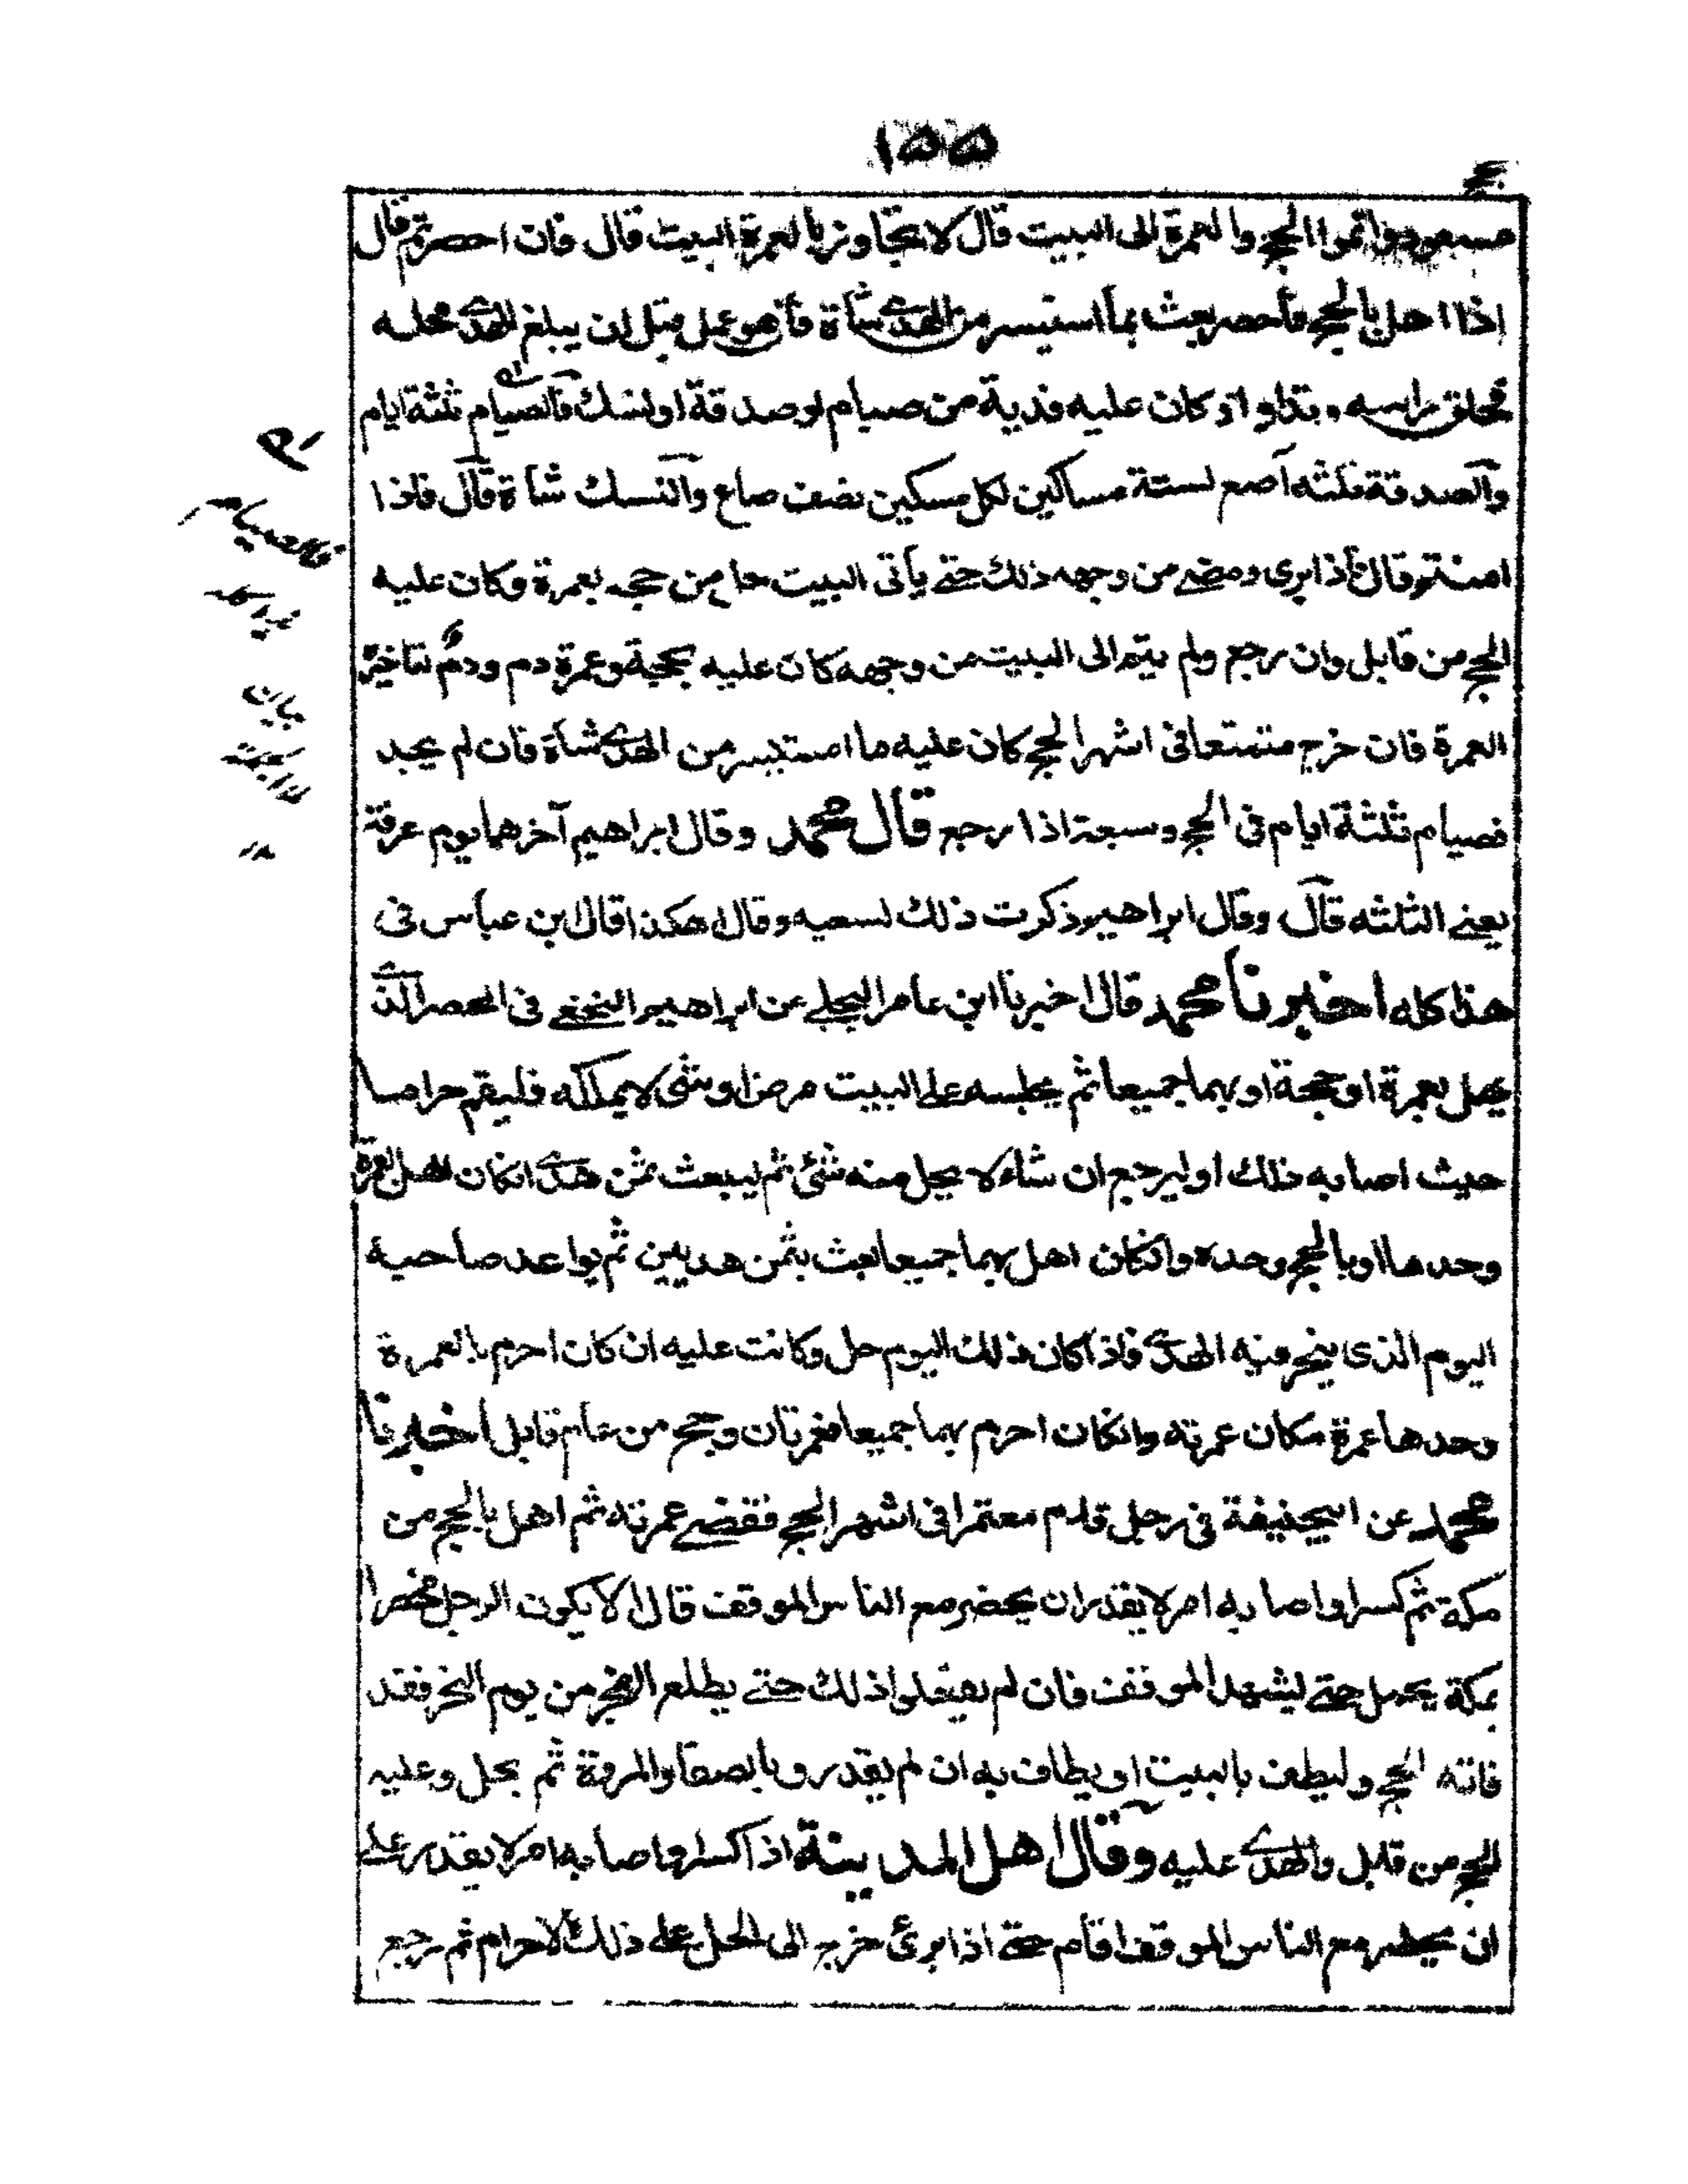 ١٥٥
مسعود واتموا الحج والعمرة الى البيت قال لا تجاوز بالعمرة البيت قال فان احصرتم قال
اذا اهل بالحج فاحصر بعث بما استيسر من الهدى شاة فان هو عجل قبل ان يبلغ الهدى محله
فحلق راسه وتداوا وكان عليه فدية من صيام او صدقة او نسك فالصيام ثلثة ايام
والصدقة ثلثه آصع لستة مساكين لكل مسكين نصف صاع والنسك شاة قال فاذا
امنتم قال فاذا برى ومضى من وجهه ذلك حتى يأتى البيت حل من حجه بعمرة وكان عليه
الحج من قابل وان رجع ولم يتم الى البيت من وجهه كان عليه بحجة وعمرة دم ودم لتاخير
العمرة فان خرج متمتعا فى اشهر الحج كان عليه ما استيسر من الهدى شاة فان لم يجد
فصيام ثلثة ايام فى الحج وسبعة اذا رجع قال محمد وقال ابراهيم آخرها يوم عرفة
يعنى الثلثه قال وقال ابراهيم وذكرت ذلك لسعيد وقال هكذا قال ابن عباس فى
هذا كله اخبرنا محمد قال اخبرنا ابن عامر البجلى عن ابراهيم النخعى فى المحصر الذى
يهل بعمرة او حجة او بهما جميعا ثم يحبسه على البيت مرض او شئ لا يملكه فليقم حراما
حيث اصابه ذلك او ليرجع ان شاء لا يحل منه شئ ثم ليبعث بثمن هدى انكان اهل بعمرة
وحدها او بالحج وحده وانكان اهل بهما جميعا بعث بثمن هديين ثم يواعد صاحبه
اليوم الذى ينحر فيه الهدى فاذا كان ذلك اليوم حل وكانت عليه ان كان احرم بالعمرة
وحدها عمرة مكان عمرته وانكان احرم بهما جميعا فعمرتان وحج من عام قابل اخبرنا
محمد عن ابيحنيفة فى رجل قدم معتمرا فى اشهر الحج فقضى عمرته ثم اهل بالحج من
مكة ثم كسر او اصابه امر لا يقدر ان يحضر مع الناس الموقف قال لا يكون الرجل محصرا
بمكة يحمل حتى يشهد الموقف فان لم يفعلوا ذلك حتى يطلع الفجر من يوم النحر فقد
فاته الحج وليطف بالبيت او يطاف به ان لم يقدر وبالصفا والمروة ثم يحل وعليه
الحج من قابل والهدى عليه وقال اهل المدينة اذا كسر او اصابه امر لا يقدر على
ان يحضر مع الناس الموقف اقام حتى اذا برئ خرج الى الحل على ذلك الاحرام ثم رجع